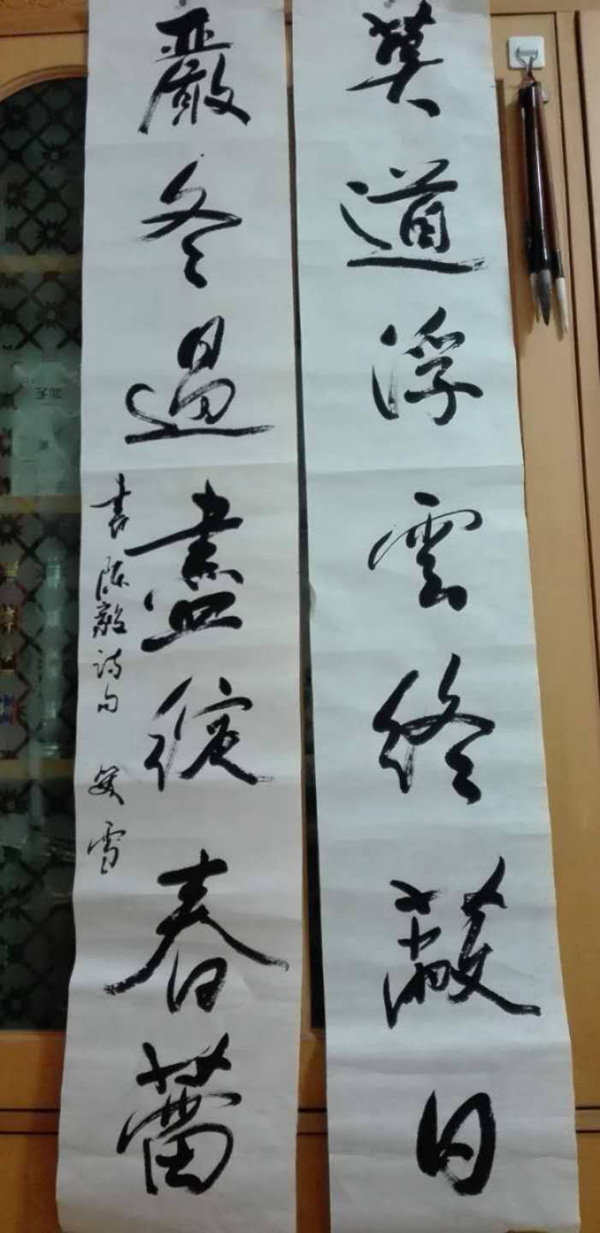 莫道浮雲終蔽日
嚴冬過盡綻春蕾
书陈毅诗句